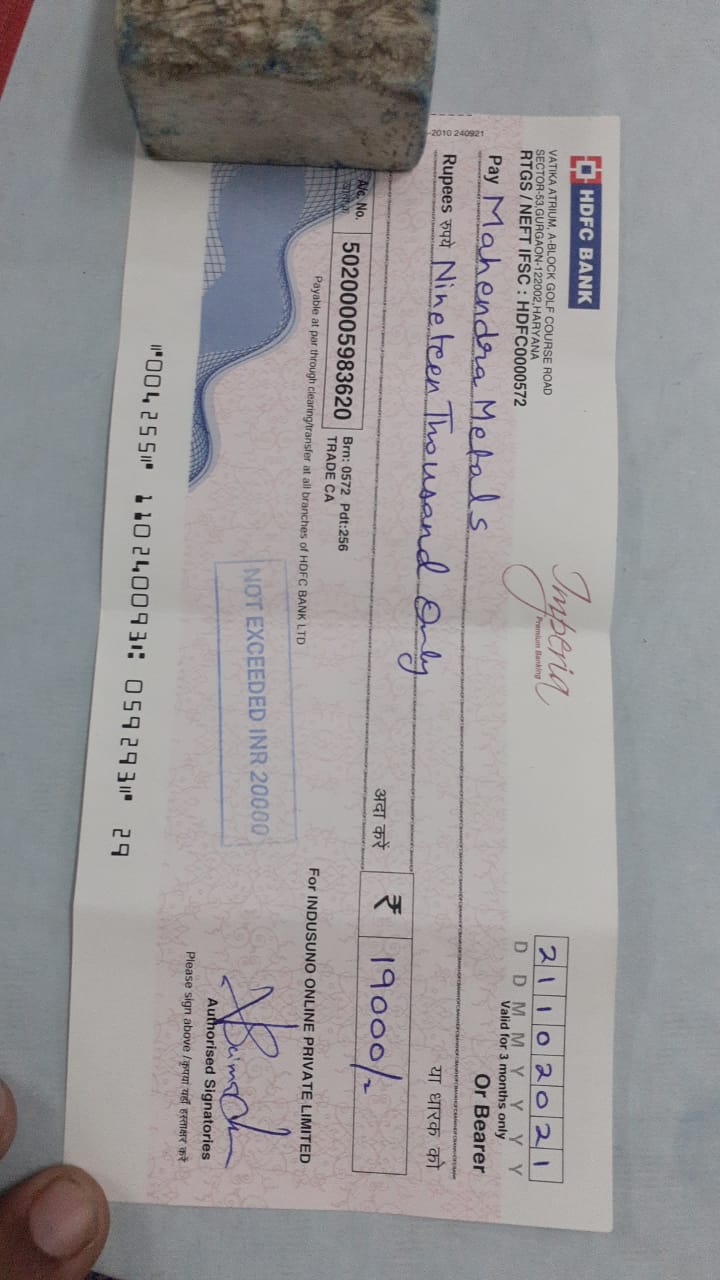 HDFC BANK
VATIKA ATRIUM, A-BLOCK GOLF COURSE ROAD
SECTOR-53,GURGAON-122002,HARYANA
RTGS / NEFT IFSC : HDFC0000572
Imperia
Premium Banking
21102021
D D M M Y Y Y Y
Valid for 3 months only
-2010 240921
Pay Mahendra Metals Or Bearer
या धारक को
Rupees रुपये Nineteen Thousand Only
अदा करें ₹ 19000/-
A/c. No. 50200005983620
Brn: 0572 Pdt:256
TRADE CA
Payable at par through clearing/transfer at all branches of HDFC BANK LTD
For INDUSUNO ONLINE PRIVATE LIMITED
NOT EXCEEDED INR 20000
Authorised Signatories
Please sign above / कृपया यहाँ हस्ताक्षर करें
⑈004255⑈ 110240093⑆ 059293⑈ 29